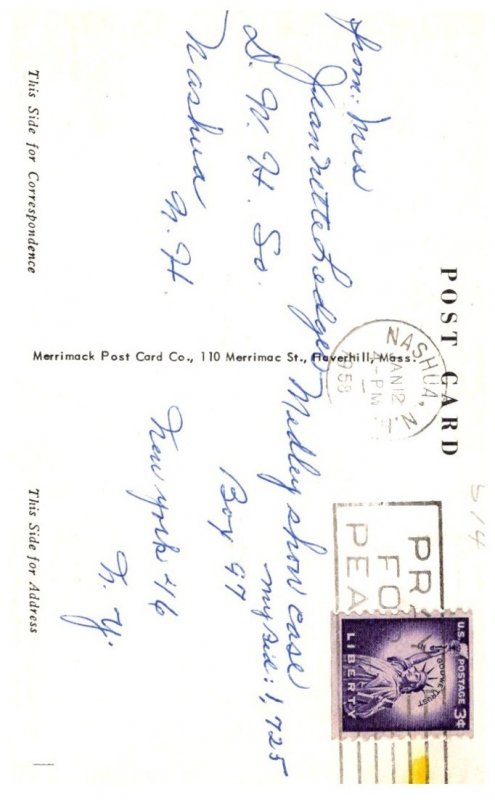 POST CARD
This Side for Correspondence
This Side for Address
from: Mrs
Jeannette Ledger
D. W. H. So.
Nashua
N. H.
Merrimack Post Card Co., 110 Merrimac St., Haverhill, Mass.
NASHUA, N
JAN 12
4-PM
1956
514
PR
FO
PEA
U.S. POSTAGE 3¢
IN GOD WE TRUST
LIBERTY
Medley show case
my bid: 1,725
Box 97
New york 46
N. Y.